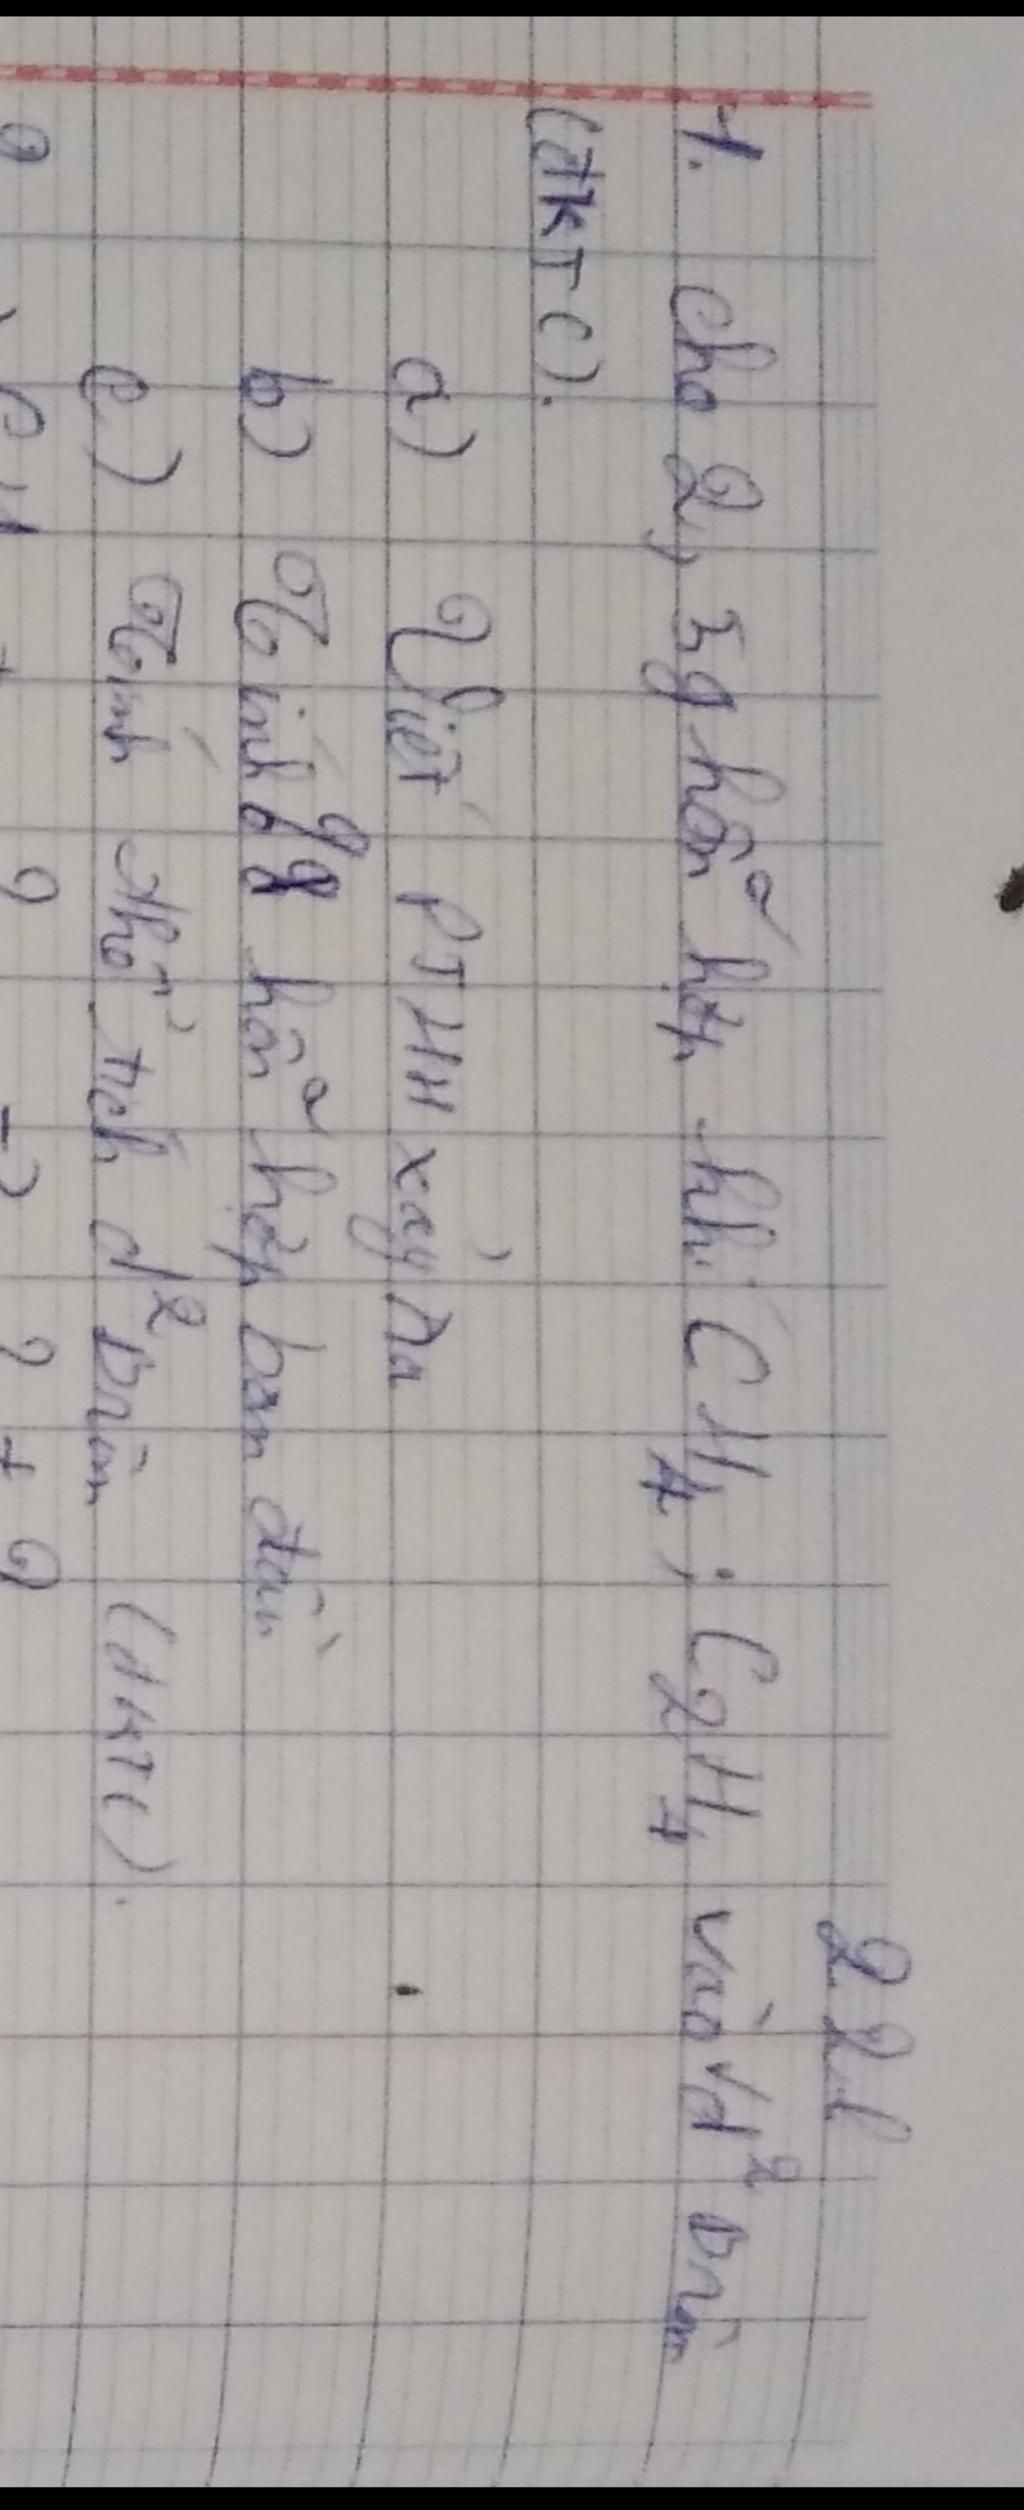 22l
1. Cho 2,3g hỗn hợp khí CH4; C2H4 vào d² Brôm
(đKTC).
a) Viết PTHH xảy ra
b) Tính hỗn hợp ban đầu
c) Tính thể tích d² Brôm (đKTC).